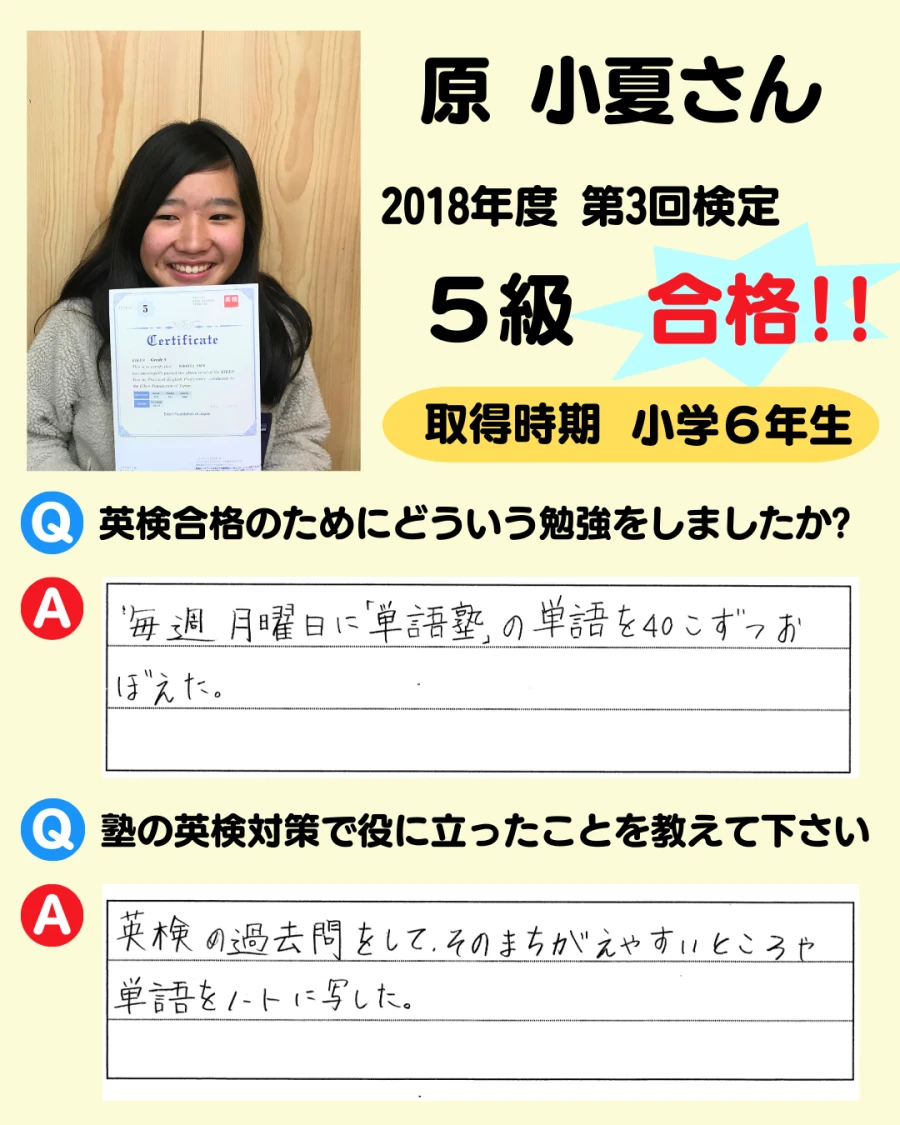 原 小夏さん
2018年度 第3回検定
5級 合格!!
取得時期 小学6年生
5
英検
Certificate
EIKEN Grade 5
Eiken Foundation of Japan
Q 英検合格のためにどういう勉強をしましたか?
A 毎週 月曜日に「単語塾」の単語を40こずつお
ぼえた。
Q 塾の英検対策で役に立ったことを教えて下さい
A 英検の過去問をして、そのまちがえやすいところや
単語をノートに写した。